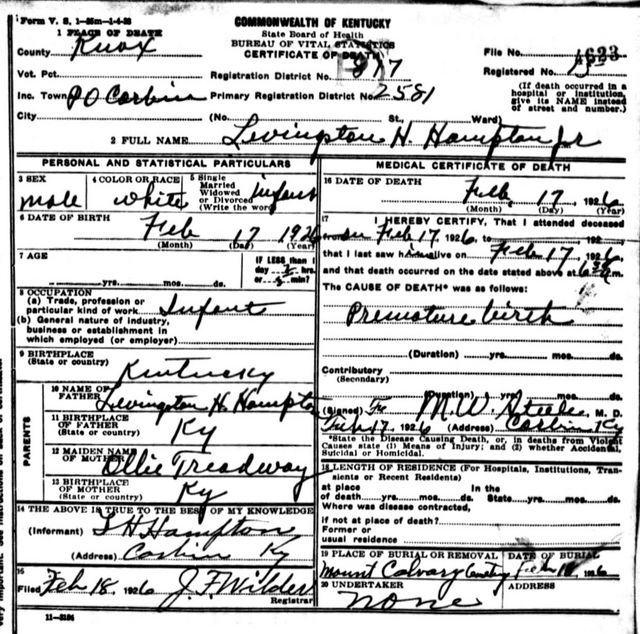 Form V. S. 1-35m-1-4-26
COMMONWEALTH OF KENTUCKY
State Board of Health
BUREAU OF VITAL STATISTICS
CERTIFICATE OF DEATH
1 PLACE OF DEATH
County Knox
File No. 4623
Vot. Pct.
Registration District No. 817
Registered No.
(If death occurred in a hospital or institution, give its NAME instead of street and number.)
Inc. Town P O Corbin
Primary Registration District No. 2581
City (No. St., Ward)
2 FULL NAME Levingston H. Hampton Jr
PERSONAL AND STATISTICAL PARTICULARS
3 SEX male
4 COLOR OR RACE white
5 Single Married Widowed or Divorced (Write the word) infant
6 DATE OF BIRTH Feb 17 1926
(Month) (Day) (Year)
7 AGE
yrs. mos. ds.
IF LESS than 1 day hrs. or min?
8 OCCUPATION
(a) Trade, profession or particular kind of work Infant
(b) General nature of industry, business or establishment in which employed (or employer)
9 BIRTHPLACE
(State or country) Kentucky
PARENTS
10 NAME OF FATHER Levingston H. Hampton
11 BIRTHPLACE OF FATHER
(State or country) Ky
12 MAIDEN NAME OF MOTHER Ollie Treadway
13 BIRTHPLACE OF MOTHER
(State or country) Ky
14 THE ABOVE IS TRUE TO THE BEST OF MY KNOWLEDGE
(Informant) L H Hampton
(Address) Corbin Ky
15
Filed Feb 18, 1926 J. F. Wilder
Registrar
MEDICAL CERTIFICATE OF DEATH
16 DATE OF DEATH Feb. 17, 1926
(Month) (Day) (Year)
17 I HEREBY CERTIFY, That I attended deceased
on Feb 17 1926 to 192
that I last saw him alive on Feb 17, 1926
and that death occurred on the date stated above at
The CAUSE OF DEATH* was as follows:
Premature birth
(Duration) yrs. mos. ds.
Contributory
(Secondary)
(Duration) yrs. mos. ds.
(Signed) M. W. Steele M. D.
Feb 17, 1926 (Address) Corbin Ky
*State the Disease Causing Death, or, in deaths from Violent Causes state (1) Means of Injury; and (2) whether Accidental, Suicidal or Homicidal.
18 LENGTH OF RESIDENCE (For Hospitals, Institutions, Transients or Recent Residents)
at place of death yrs. mos. ds. In the State yrs. mos. ds.
Where was disease contracted,
if not at place of death?
Former or
usual residence
19 PLACE OF BURIAL OR REMOVAL Mount Calvary
DATE OF BURIAL Feb 1926
20 UNDERTAKER none
ADDRESS
11-3184